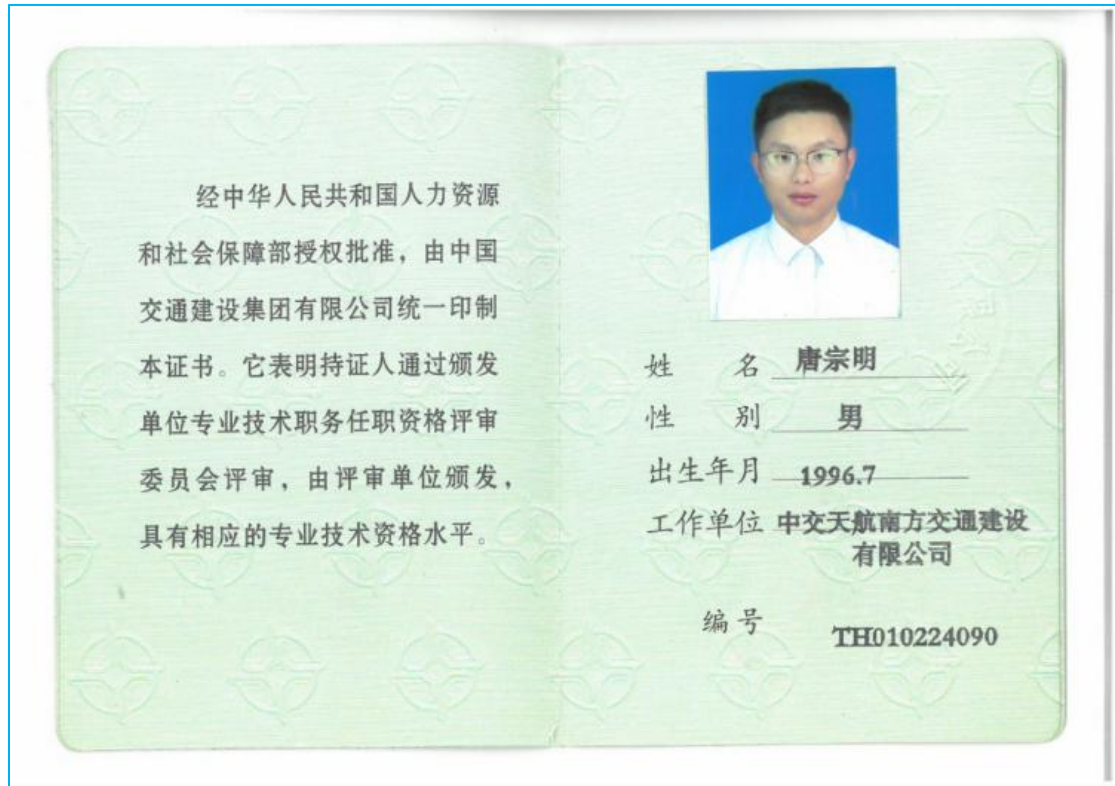 经中华人民共和国人力资源
和社会保障部授权批准，由中国
交通建设集团有限公司统一印制
本证书。它表明持证人通过颁发
单位专业技术职务任职资格评审
委员会评审，由评审单位颁发，
具有相应的专业技术资格水平。
姓名 唐宗明
性别 男
出生年月 1996.7
工作单位 中交天航南方交通建设
有限公司
编号 TH010224090